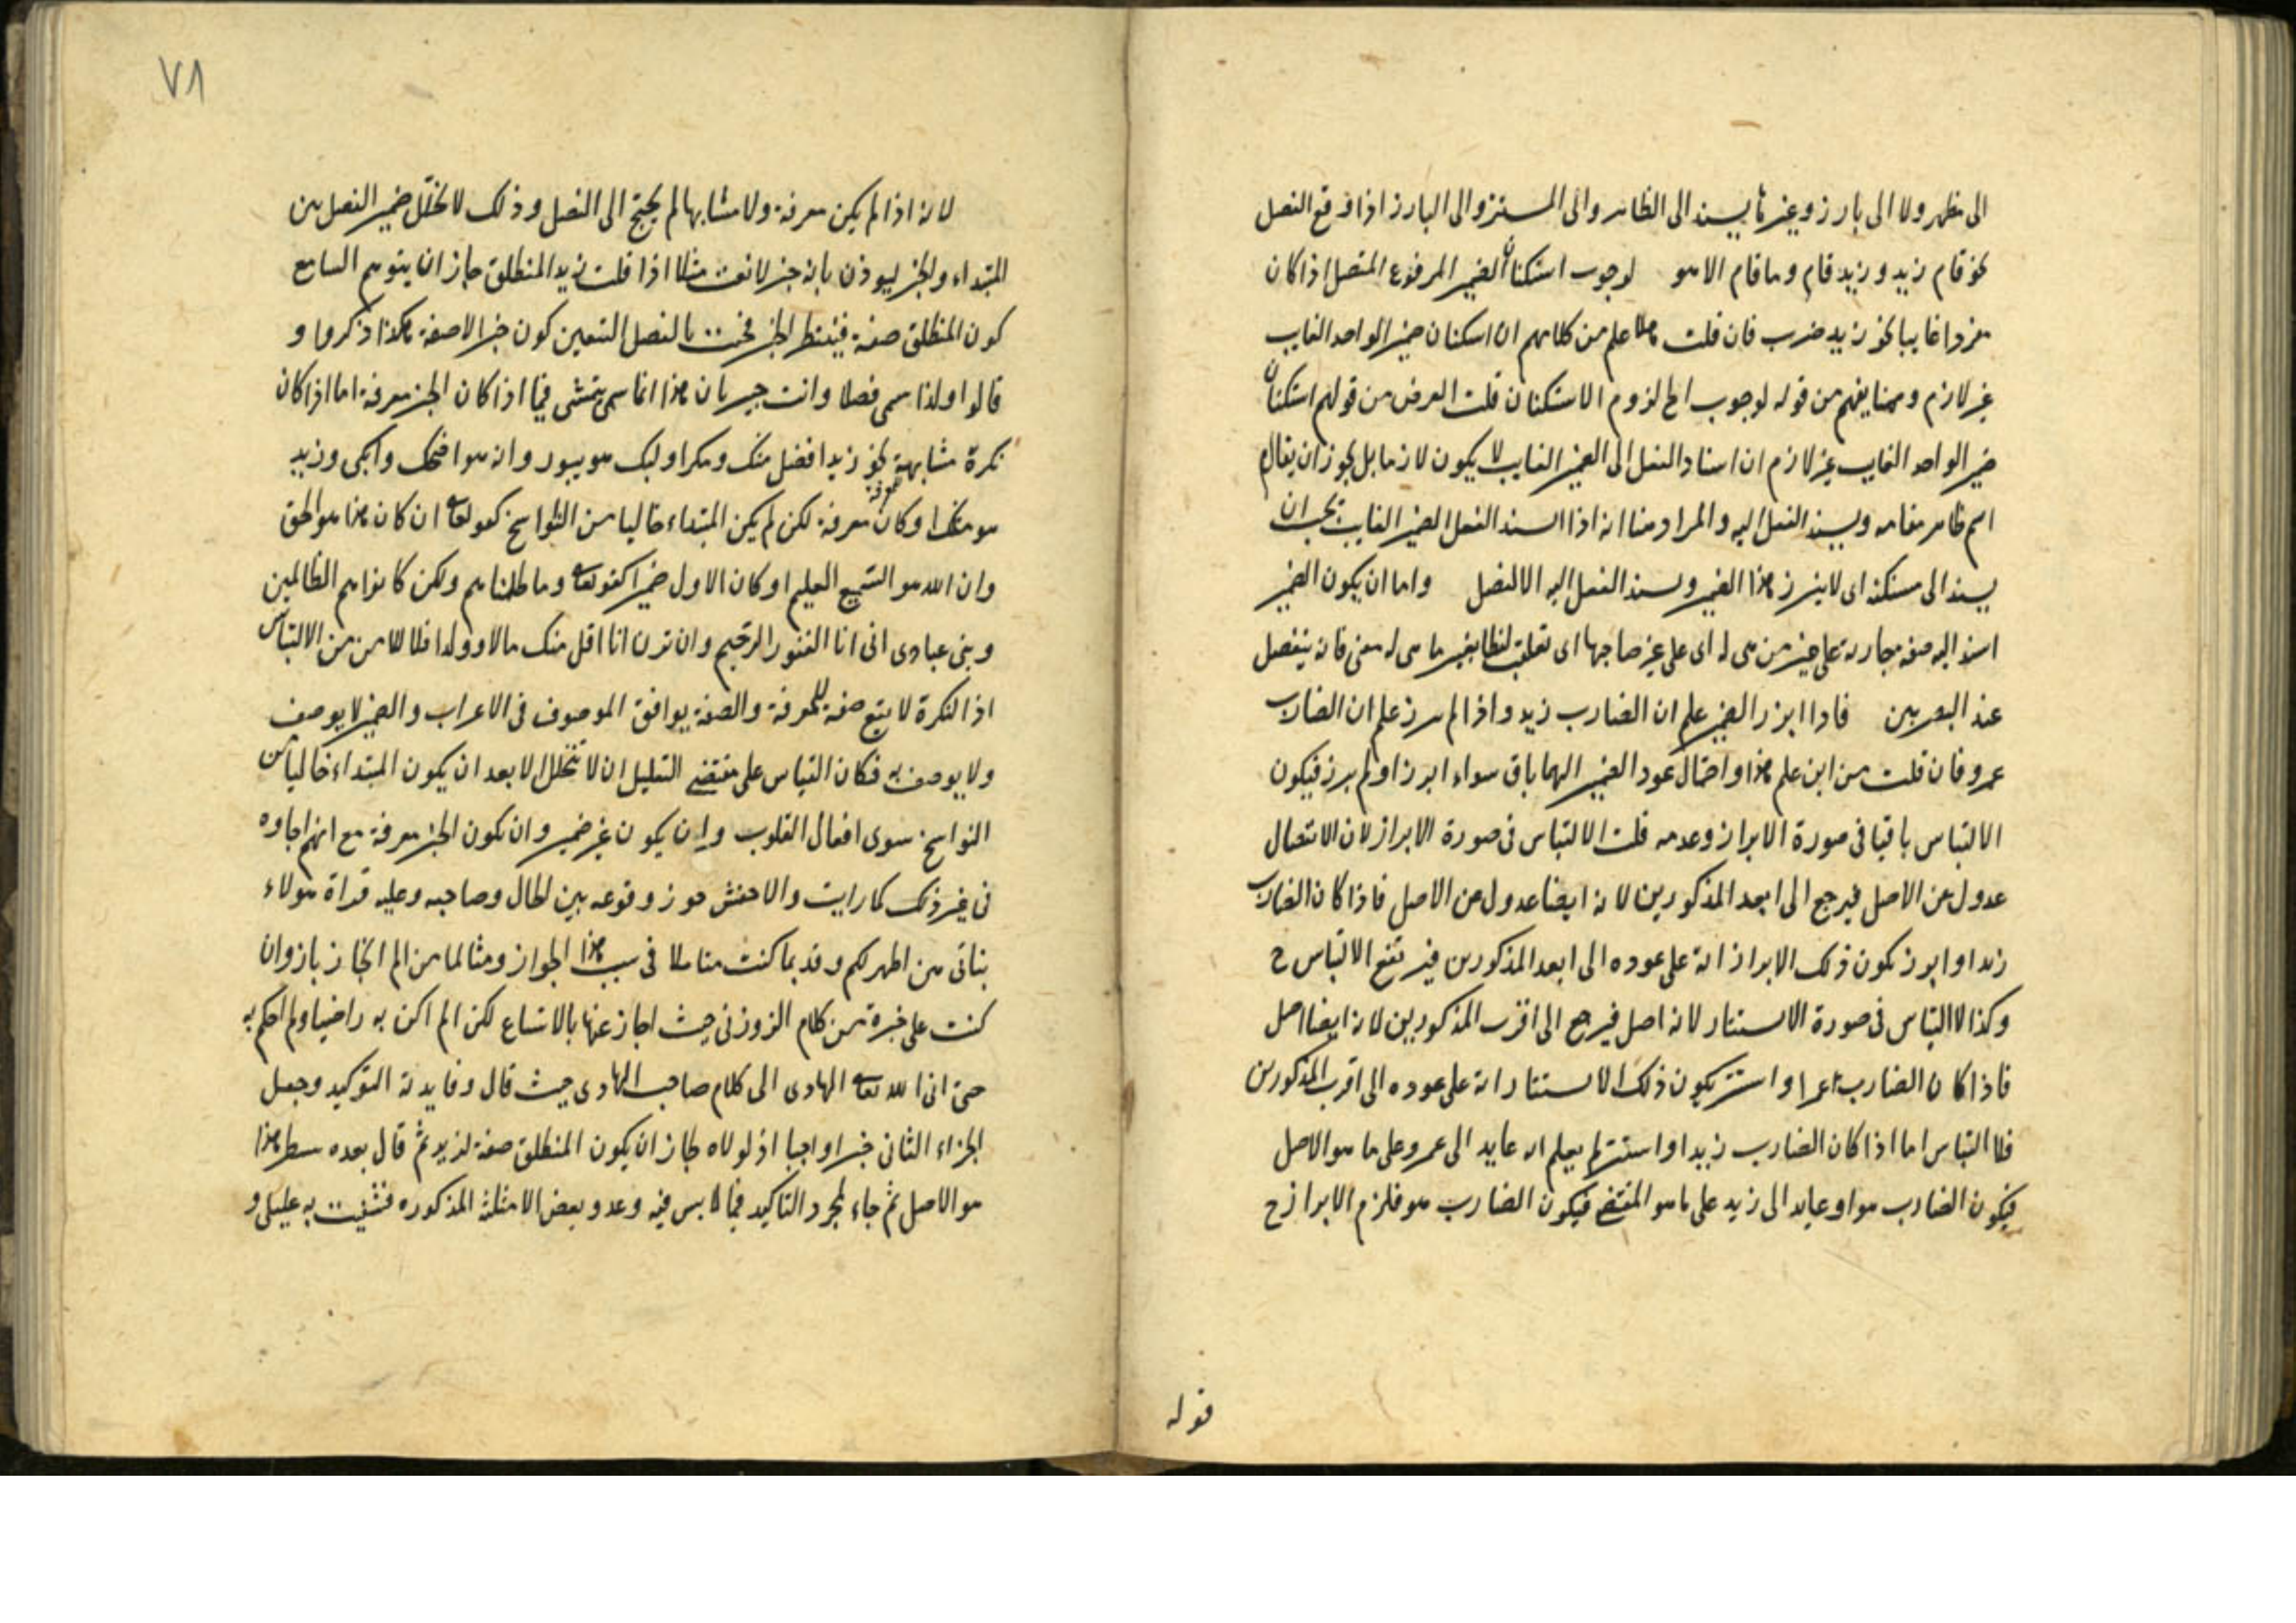 الى مظهر ولا الى بارز وغيرها يسند الى الظاهر والى المستتر والى البارز اذا وقع الفصل
نحو قام زيد وزيد قام وما قام الا هو لوجوب استكنان الضمير المرفوع المتصل اذا كان
مفردا غايبا نحو زيد ضرب فان قلت علم من كلامهم ان استكنان ضمير الواحد الغايب
غير لازم وههنا يفهم من قوله لوجوب الخ لزوم الاستكنان قلت الغرض من قولهم استكنان
ضمير الواحد الغايب غير لازم ان اسناد الفعل الى الضمير الغايب لا يكون لازما بل يجوز ان يقال
اسم ظاهر مقامه ويسند الفعل اليه والمراد هنا انه اذا اسند الفعل الضمير الغايب يجب ان
يسند الى مستكنه اى لا يبرز هذا الضمير ويسند الفعل اليه الا لفصل واما ان يكون الضمير
اسند اليه صفة جارية على غير من هى له اى على غير صاحبها اى تعلقت لفظا بغير ما هى له معنى فانه ينفصل
عند البصريين فاذا ابرز الضمير علم ان الضارب زيد واذا لم يبرز علم ان الضارب
عمرو فان قلت من اين علم هذا واحتمال عود الضمير اليهما باق سواء ابرز او لم يبرز فيكون
الالتباس باقيا فى صورة الابراز وعدمه قلت لا التباس فى صورة الابراز لان الانفصال
عدول عن الاصل فيرجع الى ابعد المذكورين لانه ايضا عدول عن الاصل فاذا كان الضارب
زيدا وابرز يكون ذلك الابراز اية على عوده الى ابعد المذكورين فيرتفع الالتباس ح
وكذا لا التباس فى صورة الاستتار لانه اصل فيرجع الى اقرب المذكورين لانه ايضا اصل
فاذا كان الضارب عمرا واستتر يكون ذلك الاستتار اية على عوده الى اقرب المذكورين
فلا التباس اما اذا كان الضارب زيدا واستتر لم يعلم انه عايد الى عمرو على ما هو الاصل
فيكون الضارب هو او عايد الى زيد على ما هو المقتضى فيكون الضارب هو فلزم الابراز ح
قوله
٧٨
لانه اذا لم يكن معرفة ولا مشابها لم يحتج الى الفصل وذلك لا تخلل ضمير الفصل بين
المبتداء والخبر ليوذن بانه خبر لا نعت مثلا اذا قلت زيد المنطلق جاز ان يتوهم السامع
كون المنطلق صفة فينتظر الخبر فجئت بالفصل لتعين كون خبرا لا صفة هكذا ذكروا و
قالوا ولذا سمى فصلا وانت خبير بان هذا انما يتمشى فيما اذا كان الخبر معرفة اما اذا كان
نكرة مشابهة نحو زيد افضل منك ومكر اوليك هو يبور وانه هو اضحك وابكى وزيد
هو منك او كان معرفة لكن لم يكن المبتداء خاليا من النواسخ كقوله تعالى ان كان هذا هو الحق
وان الله هو السميع العليم او كان الاول ضميرا كقوله تعالى وما ظلمناهم ولكن كانوا هم الظالمين
ونبئ عبادى انى انا الغفور الرحيم وان ترن انا اقل منك مالا وولدا فلا من الالتباس
اذ النكرة لا تقع صفة للمعرفة والصفة يوافق الموصوف فى الاعراب والضمير لا يوصف
ولا يوصف به فكان القياس على مقتضى التعليل ان لا تتخلل الا بعد ان يكون المبتداء خاليا من
النواسخ سوى افعال القلوب وان يكون غير ضمير وان يكون الخبر معرفة مع انهم اجازوه
فى غير ذلك كما رايت والاخفش جوز وقوعه بين الحال وصاحبه وعليه قراة هولاء
بناتى هن اطهر لكم وقديما كنت متاملا فى سبب هذا الجواز
كنت على خبرة من كلام الزوزنى حيث اجاز عنها بالاتساع لكن لم اكن به راضيا ولم احكم به
حتى اتى الله تعالى الهادى الى كلام صاحب الهادى حيث قال وفايدته التوكيد وجعل
الجزاء الثانى خبرا واجبا اذ لولاه لجاز ان يكون المنطلق صفة لزيد ثم قال بعده سطر هذا
هو الاصل ثم جاء لمجرد التاكيد فيما لا لبس فيه وعد وبعض الامثلة المذكوره فشفيت به غليلى و